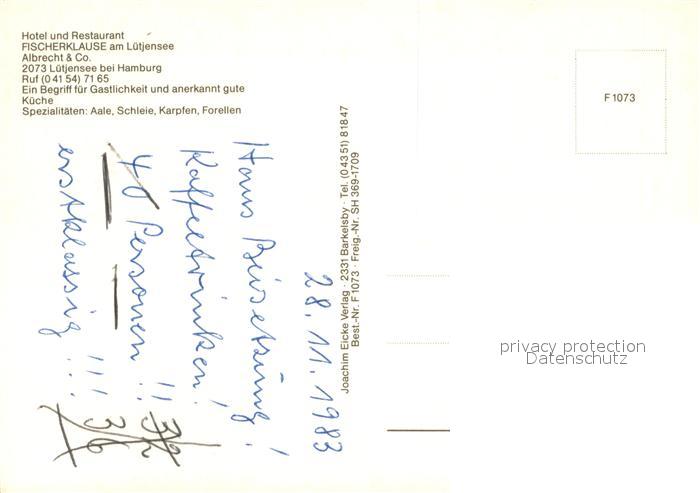 Hotel und Restaurant
FISCHERKLAUSE am Lütjensee
Albrecht & Co.
2073 Lütjensee bei Hamburg
Ruf (0 41 54) 71 65
Ein Begriff für Gastlichkeit und anerkannt gute
Küche
Spezialitäten: Aale, Schleie, Karpfen, Forellen
F 1073
Joachim Eicke Verlag · 2331 Barkelsby · Tel. (0 43 51) 8 18 47
Best.-Nr. F 1073 · Freig.-Nr. SH 369-1709
28. 11. 1983
Hans Beisetzung!
Kaffeetrinken!
40 Personen !!
erstklassig !!!
32
36
privacy protection
Datenschutz